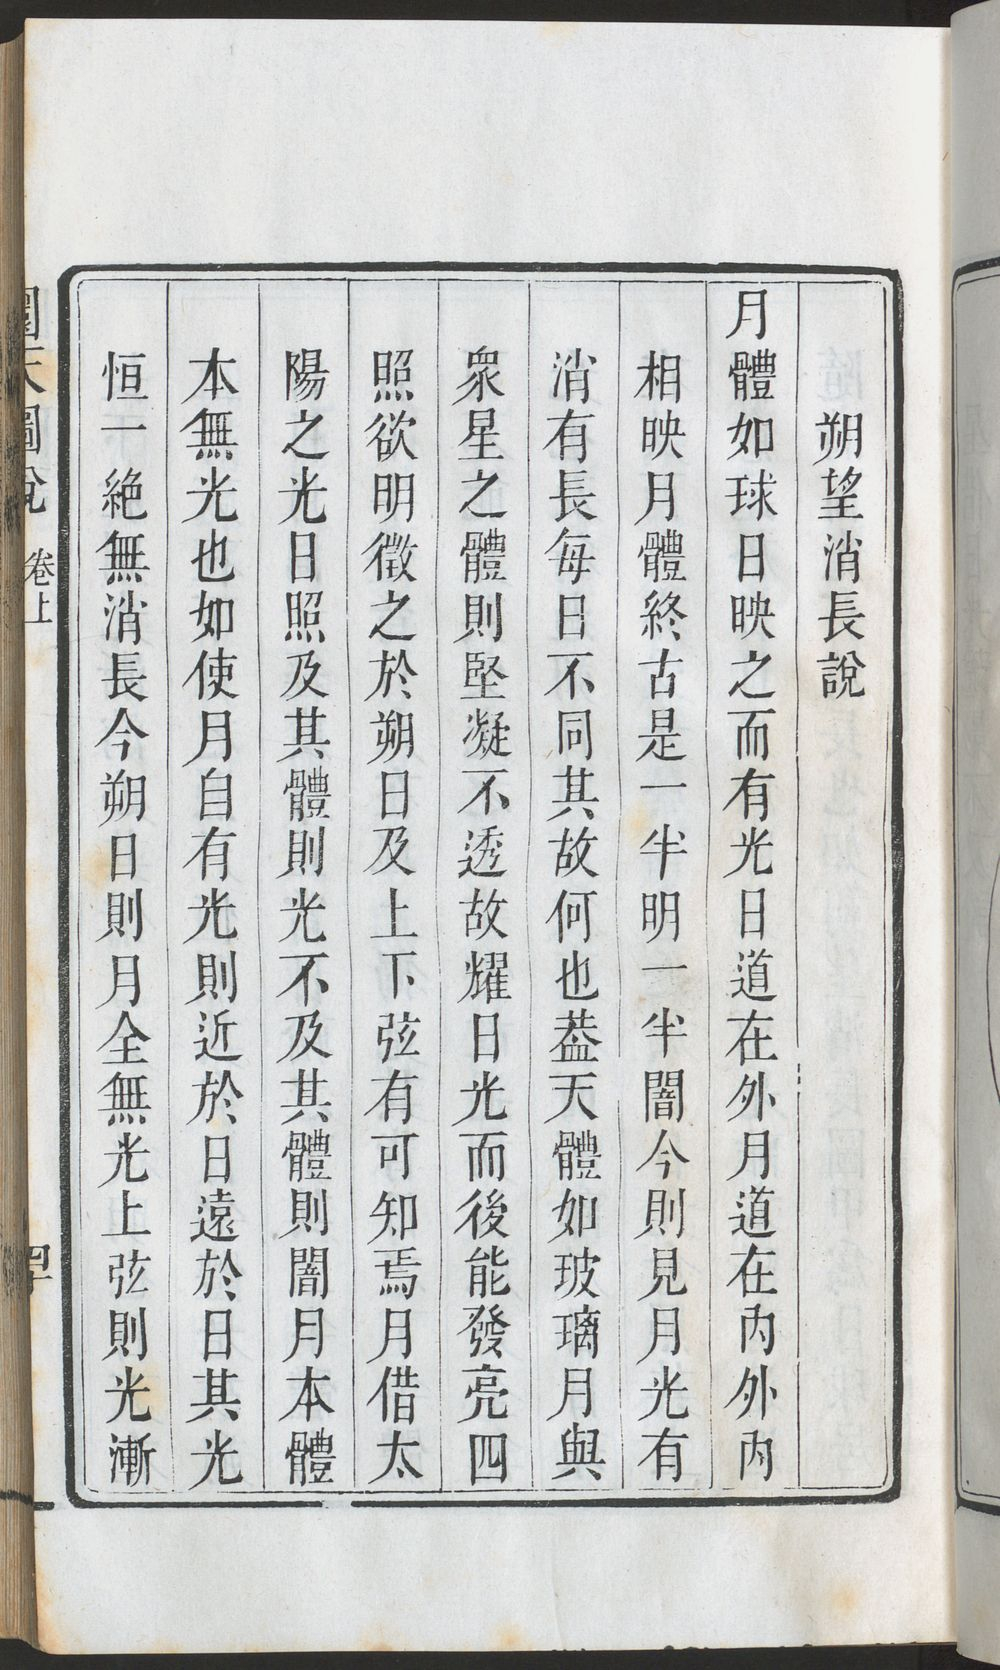 朔望消長說
月體如球日映之而有光日道在外月道在內外內
相映月體終古是一半明一半闇今則見月光有
消有長每日不同其故何也葢天體如玻璃月與
衆星之體則堅凝不透故耀日光而後能發亮四
照欲明徵之於朔日及上下弦有可知焉月借太
陽之光日照及其體則光不及其體則闇月本體
本無光也如使月自有光則近於日遠於日其光
恒一絕無消長今朔日則月全無光上弦則光漸
圜天圖說
卷上